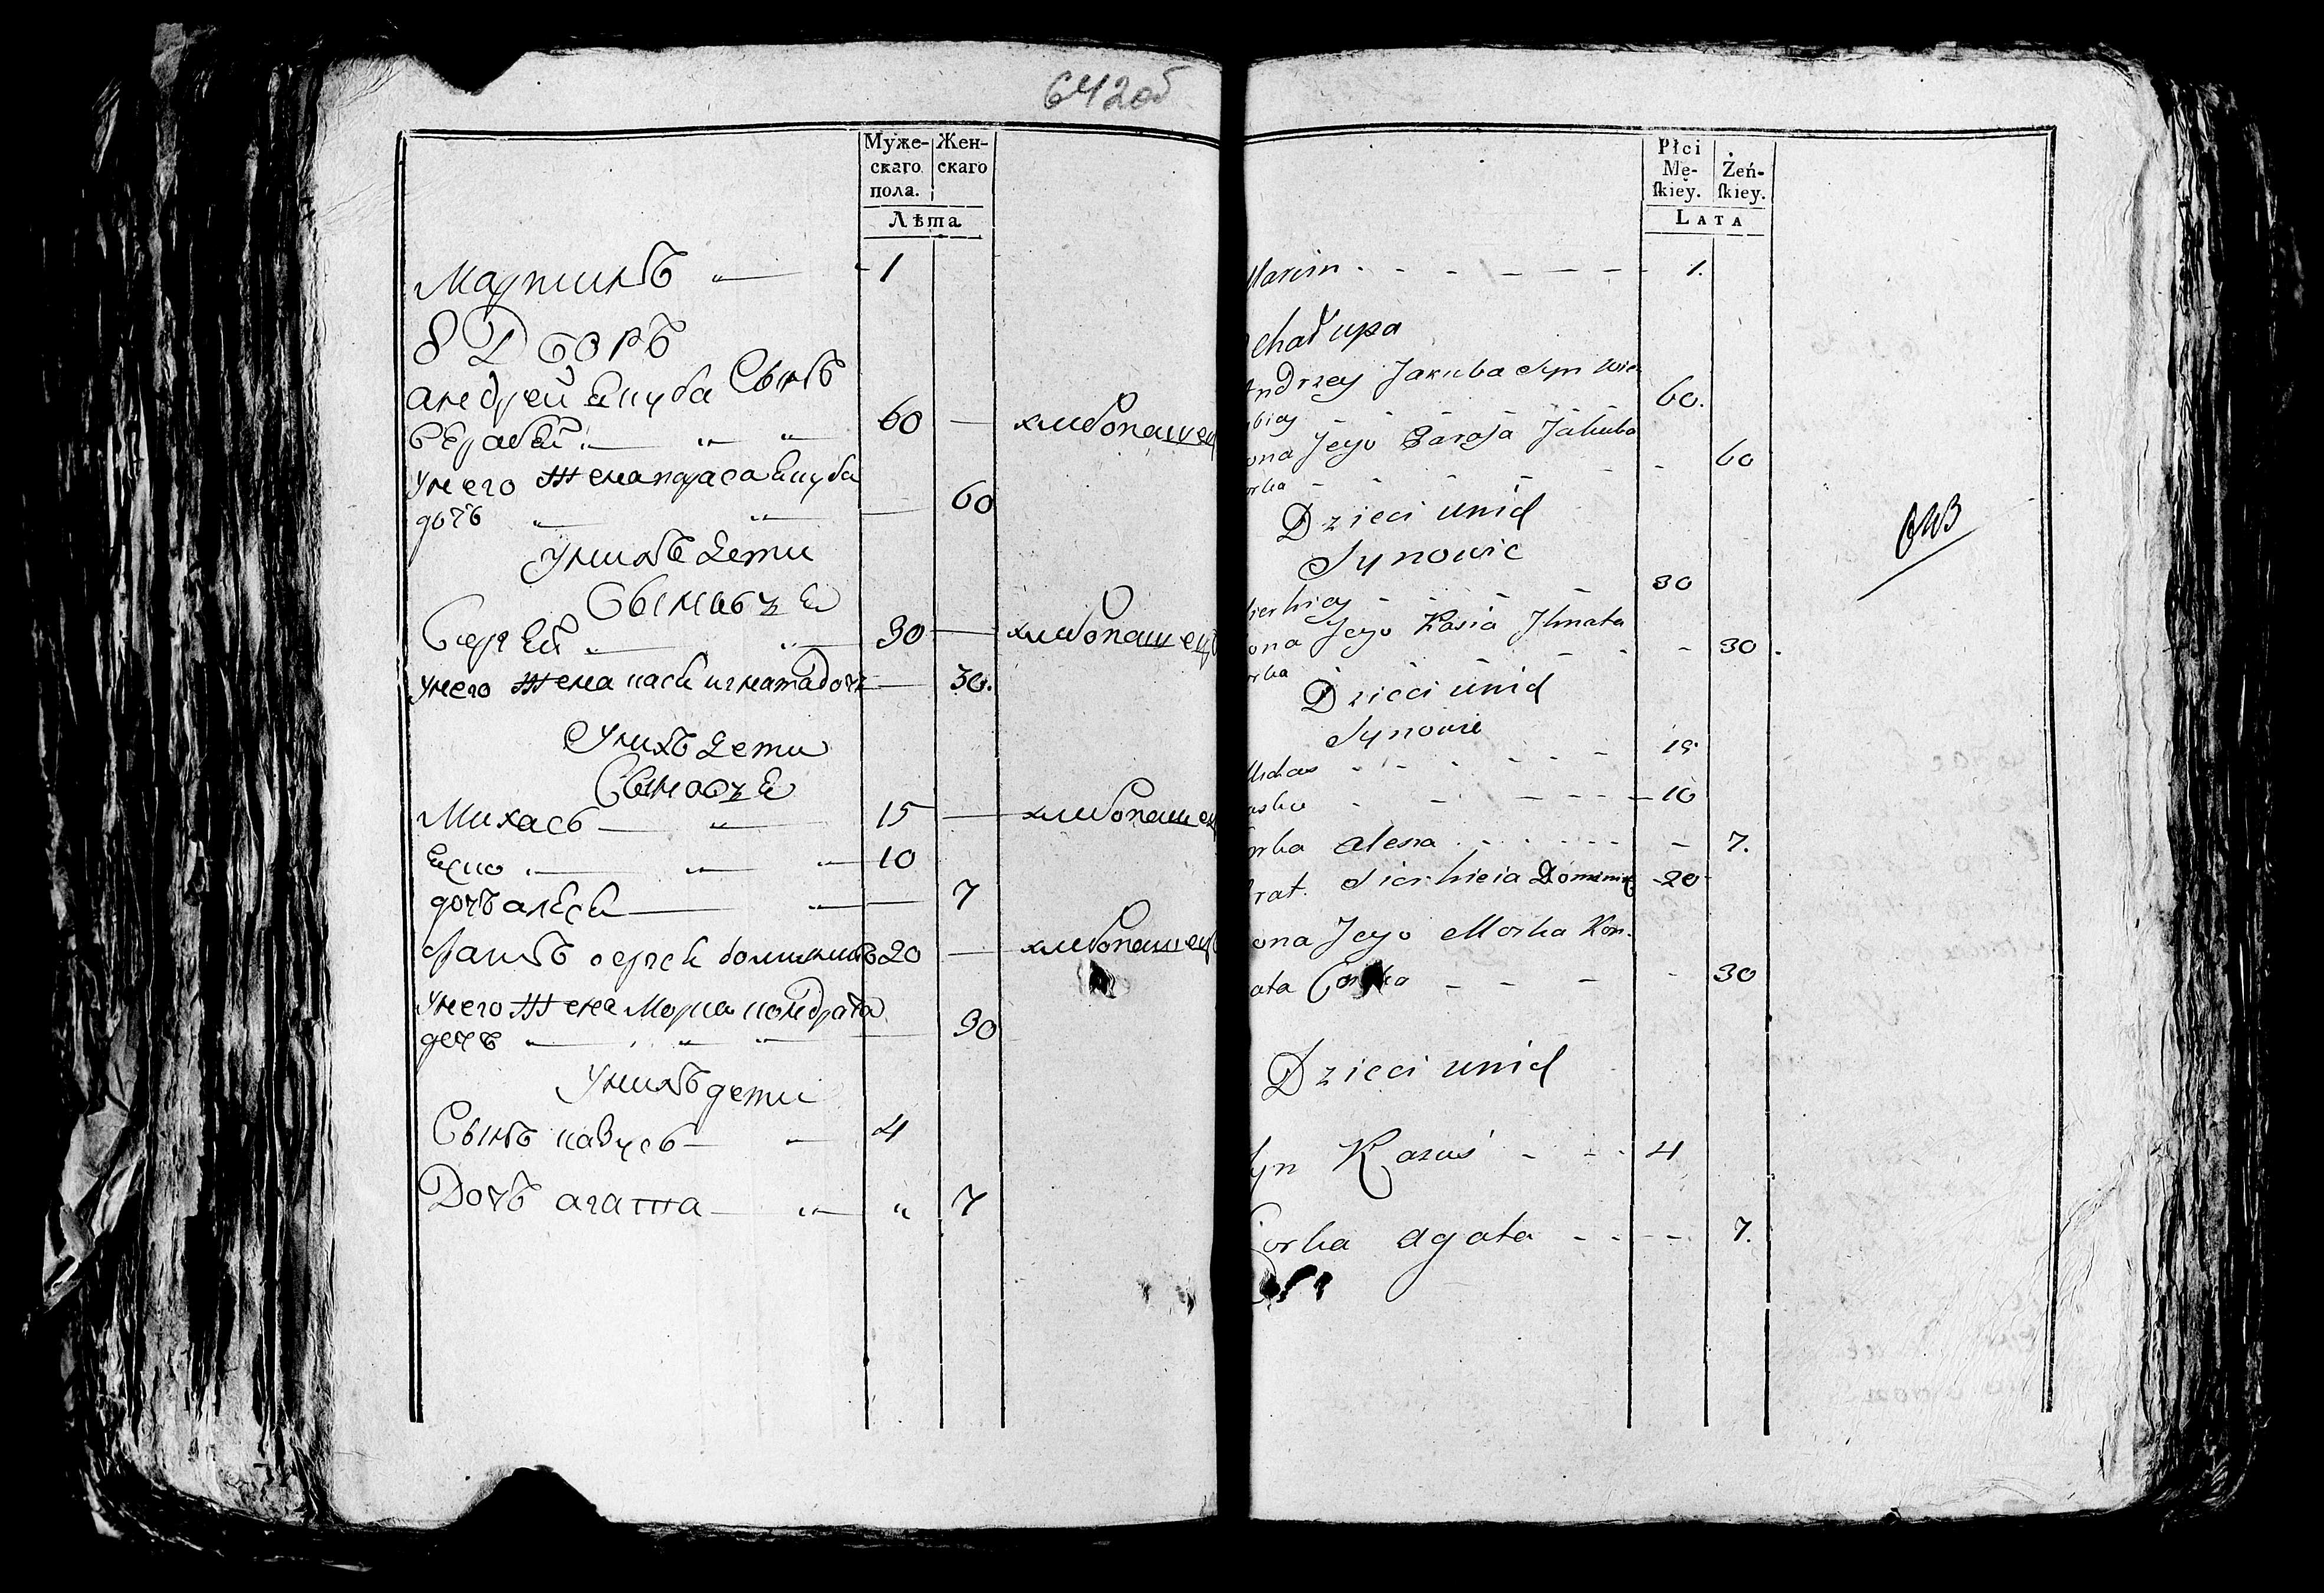 642об
Муже-
скаго
пола.
Жен-
скаго
Лѣта
Мартинъ 1
8 Дворъ
андрей Якуба Сынъ
Верабей 60 хлебопашец
унего Жена параса Якуба
дочъ 60
унихъ дети
Сергей 30 хлебопашецъ
унего Жена кася игната дочъ 30.
унихъ дети
Михась 15 хлебопашец
10
дочъ алеся 7
20 хлебопашецъ
унего Жена Морка кондрата
дочъ 30
унихъ дети
Сынъ казусь 4
Дочъ агата 7
Płci
Mę-
ſkiey.
Żeń-
ſkiey.
LATA
Marcin 1.
chałupa
Andrzey Jakuba Syn Wie
60.
ona Jego Parasa Jakuba
orka 60
Dzieci unich
Synowie
30
ona Jego Kasia Ihnata
orka 30
Dzieci unich
Synowie
Michas 15
asko 10
orka Alesia 7.
rat. Sierhieia Dominik 20
ona Jego Morka Kon-
rata Corka 30
Dzieci unich
Syn Kazuś 4
Corka Agata 7.